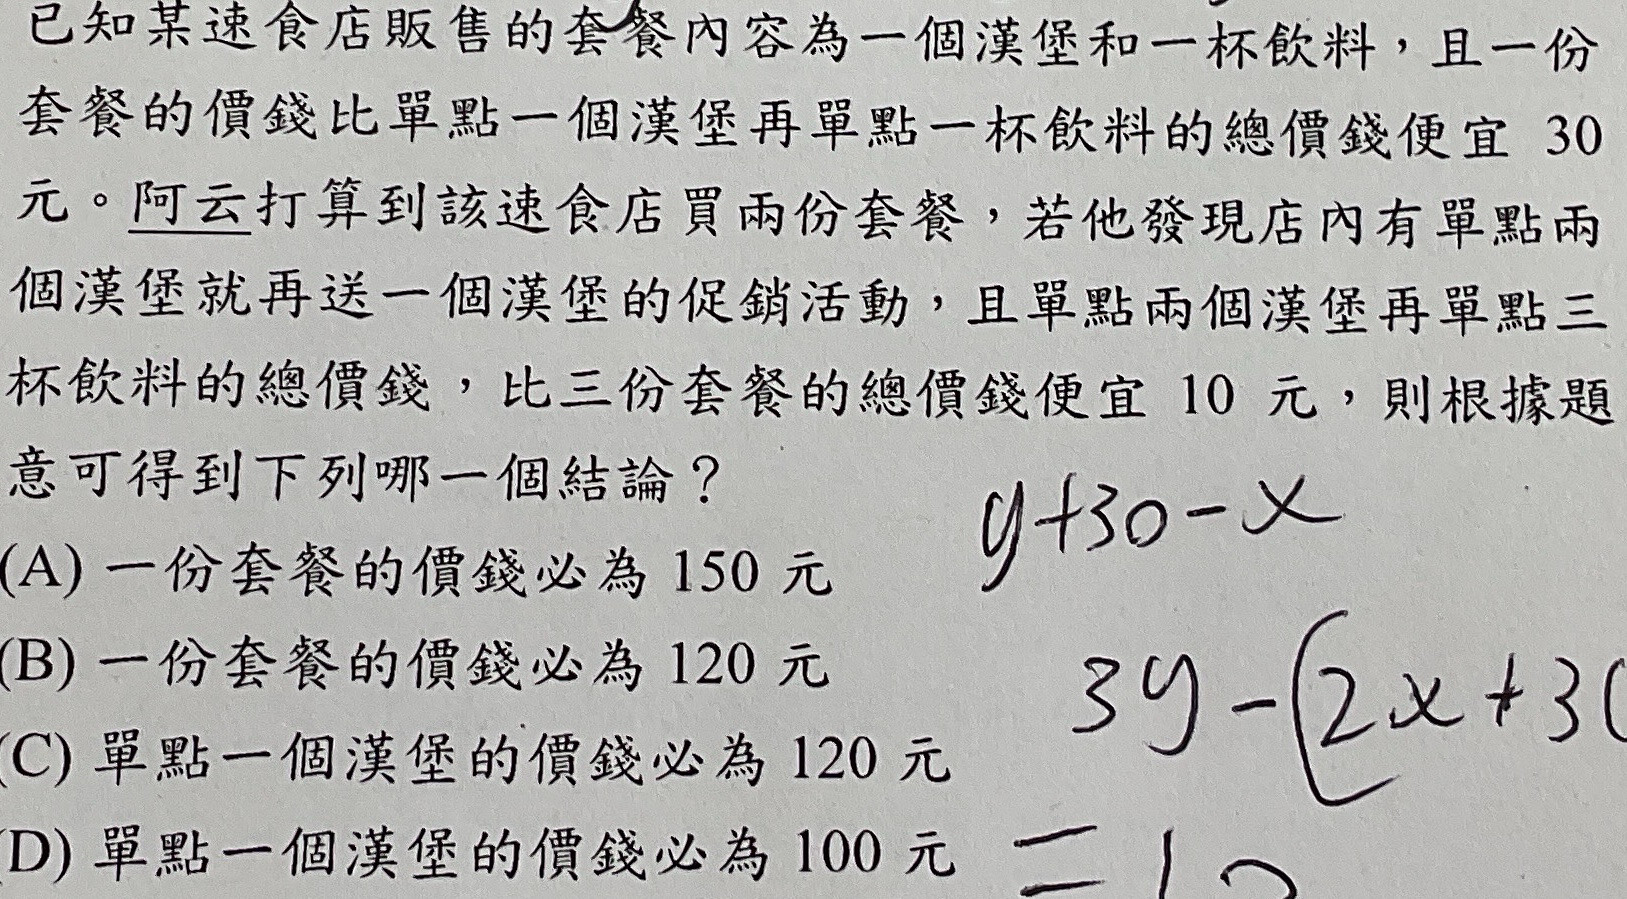 已知某速食店販售的套餐內容為一個漢堡和一杯飲料，且一份
套餐的價錢比單點一個漢堡再單點一杯飲料的總價錢便宜 30
元。阿云打算到該速食店買兩份套餐，若他發現店內有單點兩
個漢堡就再送一個漢堡的促銷活動，且單點兩個漢堡再單點三
杯飲料的總價錢，比三份套餐的總價錢便宜 10 元，則根據題
意可得到下列哪一個結論？
y+30-x
(A) 一份套餐的價錢必為 150 元
(B) 一份套餐的價錢必為 120 元
3y-(2x+3(
(C) 單點一個漢堡的價錢必為 120 元
(D) 單點一個漢堡的價錢必為 100 元
=10